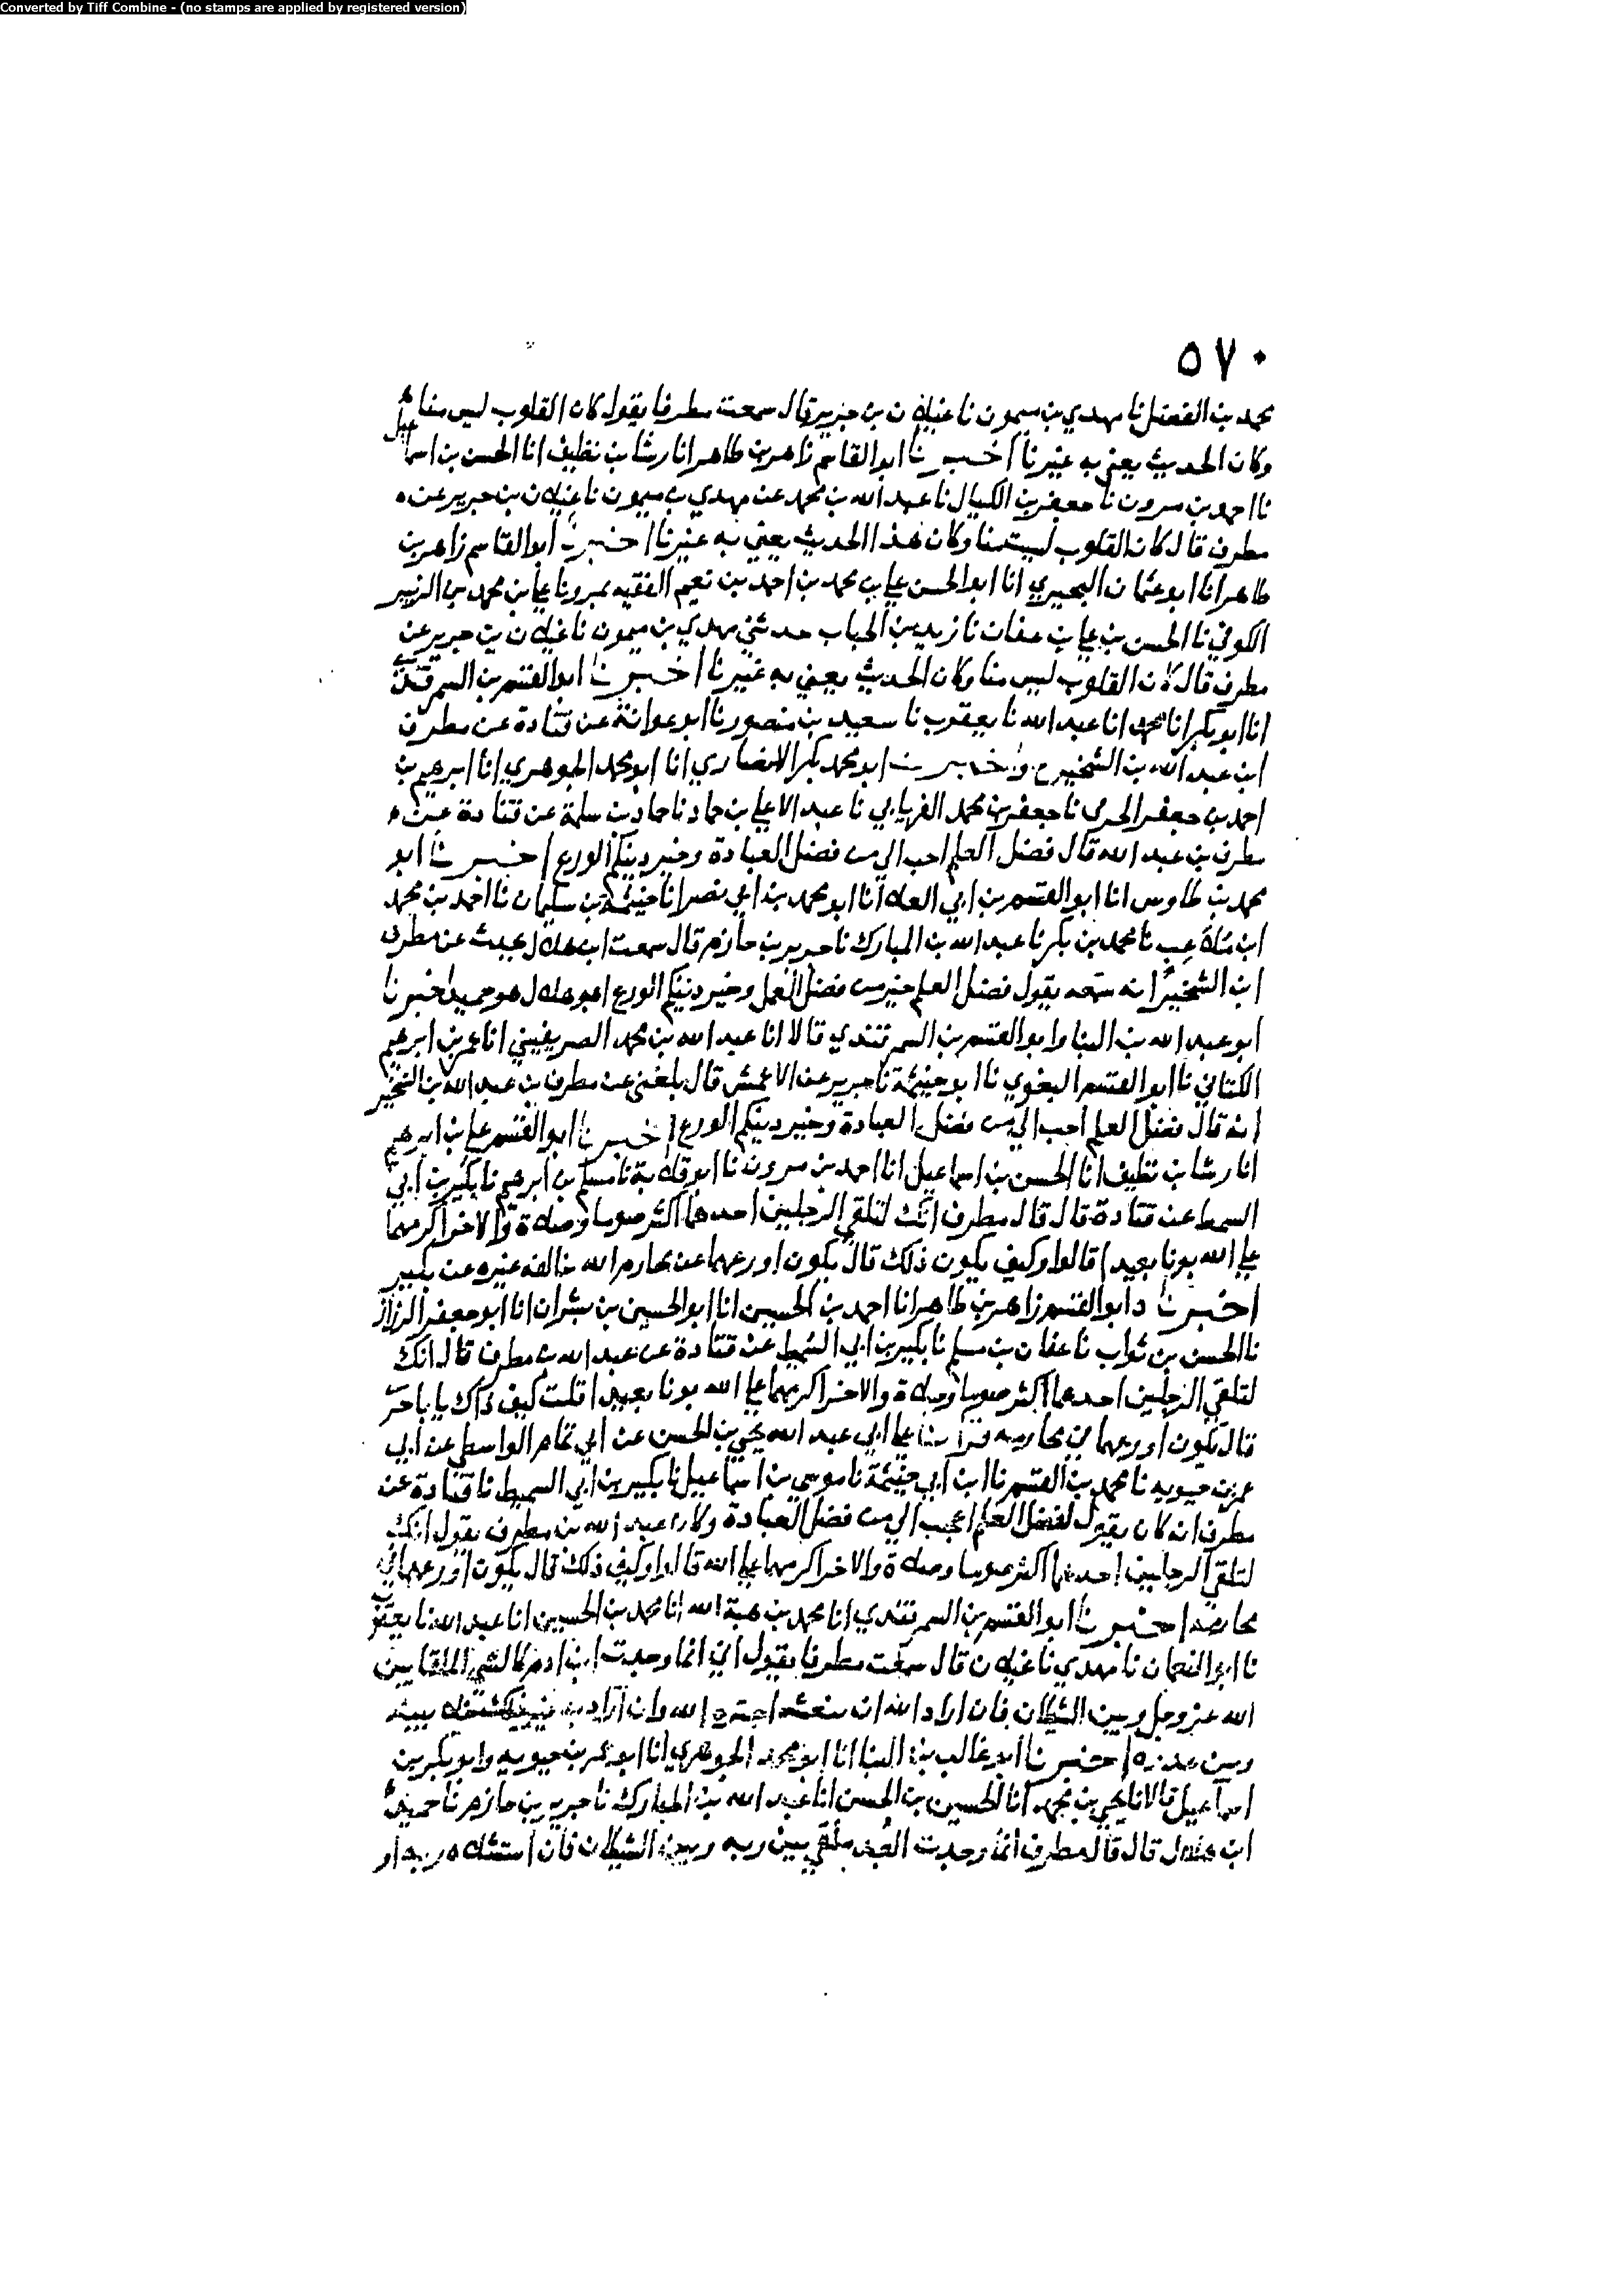 Converted by Tiff Combine - (no stamps are applied by registered version)
٥٧٠
محمد بن الفضل نا مهدي بن ميمون نا غيلان بن جرير قال سمعت مطرفا يقول كان القلوب ليس منا
وكان الحديث يعني به غيرنا اخبرنا ابو القاسم زاهر بن طاهر انا رشا بن نظيف انا الحسن بن اسماعيل
نا احمد بن مرون نا جعفر بن الكيال نا عبد الله بن محمد عن مهدي بن ميمون نا غيلان بن جرير عن
مطرف قال كان القلوب ليست منا وكان هذا الحديث يعني به غيرنا اخبرنا ابو القاسم زاهر بن
طاهر انا ابو عثمان البحيري انا ابو الحسن علي بن محمد بن احمد بن نعيم الفقيه بمرو نا علي بن محمد بن الزبير
الكوفي نا الحسن بن علي بن عفان نا زيد بن الحباب حدثني مهدي بن ميمون نا غيلان بن جرير عن
مطرف قال كان القلوب ليس منا وكان الحديث يعني به غيرنا اخبرنا ابو القسم بن السمرقندي
انا ابو بكر انا محمد انا عبد الله نا يعقوب نا سعيد بن منصور نا ابو عوانة عن قتادة عن مطرف
ابن عبد الله بن الشخير ح واخبرنا ابو محمد بكر الانصاري انا ابو محمد الجوهري انا ابرهيم بن
احمد بن جعفر الخرقي نا جعفر بن محمد الفريابي نا عبد الاعلي بن حماد نا حماد بن سلمة عن قتادة عن
مطرف بن عبد الله قال فضل العلم احب الي من فضل العبادة وخير دينكم الورع اخبرنا ابو
محمد بن طاوس انا ابو القسم بن ابي العلا انا ابو محمد بن ابي نصر انا خيثمة بن سليمان نا احمد بن محمد
ابن نا محمد بن بكر نا عبد الله بن المبارك نا جرير بن حازم قال سمعت ابن هلال يحدث عن مطرف
ابن الشخير انه سمعه يقول فضل العلم خير من فضل العمل وخير دينكم الورع ابو هلال هو حميد اخبرنا
ابو عبد الله بن البنا وابو القسم بن السمرقندي قالا انا عبد الله بن محمد الصريفيني انا عمر بن ابرهيم
الكتاني نا ابو القسم البغوي نا ابو خيثمة نا جرير عن الاعمش قال بلغني عن مطرف بن عبد الله بن الشخير
انه قال فضل العلم احب الي من فضل العبادة وخير دينكم الورع اخبرنا ابو القسم علي بن ابرهيم
انا رشا بن نظيف انا الحسن بن اسماعيل انا احمد بن مرون نا ابو قلابة نا مسلم بن ابرهيم نا بكير بن ابي
السميط عن قتادة قال قال مطرف انك لتلقي الرجلين احدهما اكثر صوما وصلاة والاخر اكرمهما
علي الله بونا بعيدا قالوا وكيف يكون ذلك قال يكون اورعهما عن محارم الله خالفه غيره عن بكير
اخبرنا ابو القسم زاهر بن طاهر انا احمد بن الحسين انا ابو الحسين بن بشران انا ابو جعفر الرزاز
نا الحسن بن ثواب نا عفان بن مسلم نا بكير بن ابي السميط عن قتادة عن عبد الله بن مطرف قال انك
لتلقي الرجلين احدهما اكثر صوما وصلاة والاخر اكرمهما علي الله بونا بعيدا قلت كيف ذاك يا با
قال يكون اورعهما في محارمه قرات علي ابي عبد الله يحيي بن الحسن عن ابي تمام الواسطي عن ابي
عمر بن حيويه نا محمد بن القسم نا ابن ابي خيثمة نا موسي بن اسماعيل نا بكير بن ابي السميط نا قتادة عن
مطرف انه كان يقول لفضل العلم اعجب الي من فضل العبادة وكان عبد الله بن مطرف يقول انك
لتلقي الرجلين احدهما اكثر صوما وصلاة والاخر اكرمهما علي الله قالوا وكيف ذلك قال يكون اورعهما في
محارمه اخبرنا ابو القسم بن السمرقندي انا محمد بن هبة الله انا محمد بن الحسين انا عبد الله نا يعقوب
نا ابو النعمان نا مهدي نا غيلان قال سمعت مطرفا يقول اني انما وجدت ابن ادم كالشي الملقا بين
الله عز وجل وبين الشيطان فان اراد الله ان ينعشه اجتره الله وان اراد به بينه
وبين عدوه اخبرنا ابو غالب بن البنا انا ابو محمد الجوهري انا ابو عمر بن حيويه وابو بكر بن
اسماعيل قالا نا يحيي بن محمد انا الحسين بن الحسن انا عبد الله بن المبارك نا جرير بن حازم نا حميد
ابن هلال قال قال مطرف انما وجدت العبد ملقي بين ربه وبين الشيطان فان ربه او